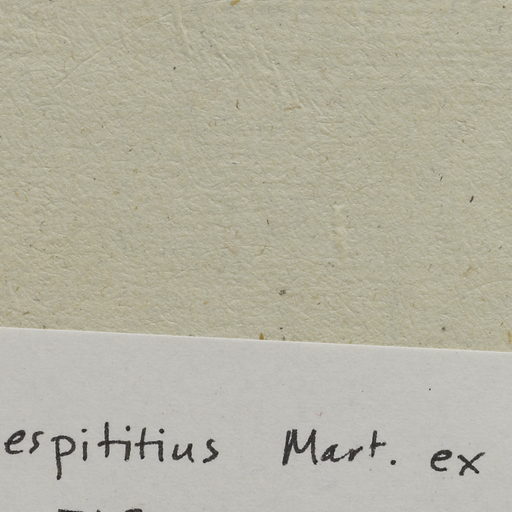 espititius Mart. ex